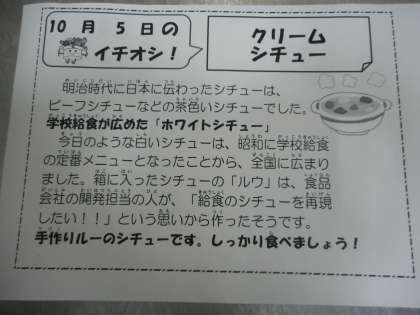 10月5日の
イチオシ！
クリーム
シチュー
明治時代に日本に伝わったシチューは、
ビーフシチューなどの茶色いシチューでした。
学校給食が広めた「ホワイトシチュー」
今日のような白いシチューは、昭和に学校給食
の定番メニューとなったことから、全国に広まり
ました。箱に入ったシチューの「ルウ」は、食品
会社の開発担当の人が、「給食のシチューを再現
したい！！」という思いから作ったそうです。
手作りルーのシチューです。しっかり食べましょう！